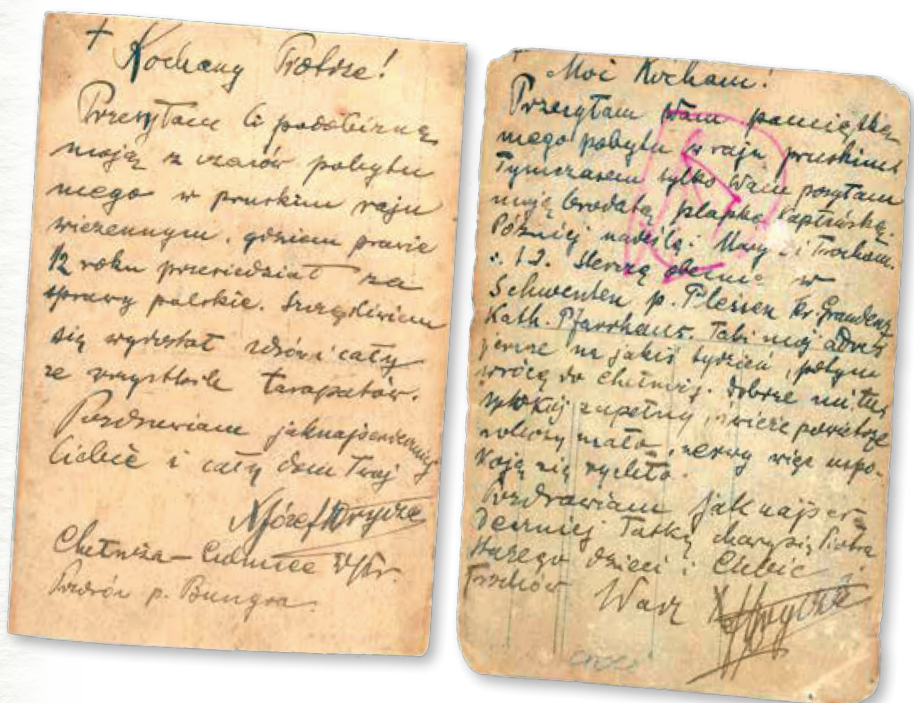 + Kochany Piotrze!
Przesyłam Ci podobiznę
moją z czasów pobytu
mego w pruskim raju
więziennym, gdziem prawie
1/2 roku przesiedział za
sprawy polskie. Szczęśliwiem
się wydostał zdrów i cały
ze wszystkich tarapatów.
Pozdrawiam jaknajserdeczniej
Ciebie i cały dom Twój
X Józef Wrycza
Chełmża – Culmsee
Powróz p. Bungra.
Moi Kochani!
Przesyłam Wam pamiątkę
mego pobytu w raju pruskim
Tymczasem tylko Wam posyłam
moją brodatą
Później nadeślę i
Siedzę obecnie w
Schwenten p. Plessen Kr Graudenz
Kath. Pfarrhaus. Taki mój adres
jeszcze na jakiś tydzień, potem
wrócę do Chełmży. Dobrze mi tu,
spokój zupełny, świeże powietrze
roboty mało, nerwy więc uspo-
koją się rychło.
Pozdrawiam jak najser-
deczniej Tatkę, Marysię, Piotra
Waszego dzieci i Ciebie
Wasz X JWrycza